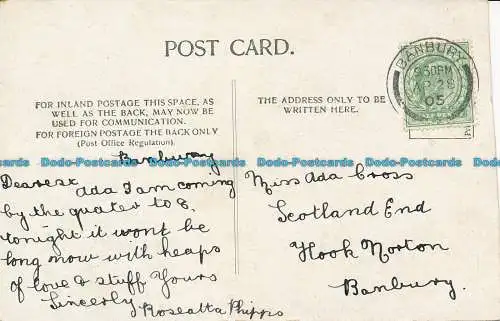 POST CARD.
FOR INLAND POSTAGE THIS SPACE, AS
WELL AS THE BACK, MAY NOW BE
USED FOR COMMUNICATION.
FOR FOREIGN POSTAGE THE BACK ONLY
(Post Office Regulation).
THE ADDRESS ONLY TO BE
WRITTEN HERE.
BANBURY
8.30PM
AP 26
05
Banbury
Dearest Ada I am coming
by the quater to 8.
tonight it wont be
long now with heaps
of love & stuff Yours
Sincerly Roseatta Phipps
Miss Ada Cross
Scotland End
Hook Norton
Banbury.
Dodo-Postcards Dodo-Postcards Dodo-Postcards Dodo-Postcards